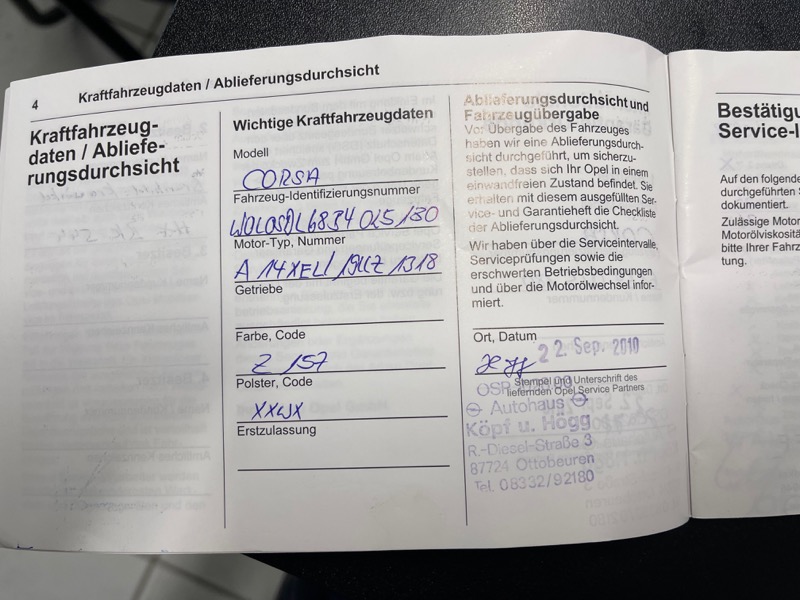 4 Kraftfahrzeugdaten / Ablieferungsdurchsicht
Kraftfahrzeug-
daten / Abliefe-
rungsdurchsicht
Wichtige Kraftfahrzeugdaten
Modell
CORSA
Fahrzeug-Identifizierungsnummer
Motor-Typ, Nummer
A 14XEL/
Getriebe
Farbe, Code
Z 157
Polster, Code
Erstzulassung
Ablieferungsdurchsicht und
Fahrzeugübergabe
Vor Übergabe des Fahrzeuges
haben wir eine Ablieferungsdurch-
sicht durchgeführt, um sicherzu-
stellen, dass sich Ihr Opel in einem
einwandfreien Zustand befindet. Sie
erhalten mit diesem ausgefüllten Ser-
vice- und Garantieheft die Checkliste
der Ablieferungsdurchsicht.
Wir haben über die Serviceintervalle,
Serviceprüfungen sowie die
erschwerten Betriebsbedingungen
und über die Motorölwechsel infor-
miert.
Ort, Datum
22. Sep. 2010
Stempel und Unterschrift des
liefernden Opel Service Partners
Autohaus
Köpf u. Högg
R.-Diesel-Straße 3
87724 Ottobeuren
Tel. 08332/92180
Bestätigu
Service-I
Auf den folgende
durchgeführten S
dokumentiert.
Zulässige Motor
Motorölviskositä
bitte Ihrer Fahrz
tung.